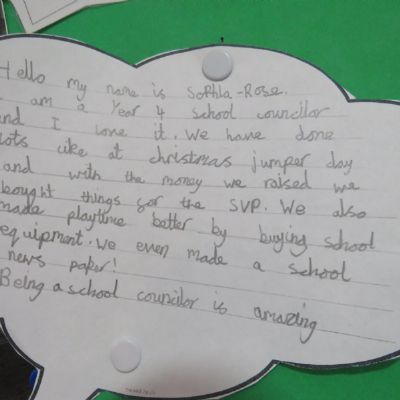 Hello my name is Sophia-Rose.
I am a Year 4 school councilor
and I love it. We have done
lots like at christmas jumper day
and with the money we raised we
bought things for the SVP. We also
made playtime better by buying school
equipment. We even made a school
news paper!
Being a school councilor is amazing